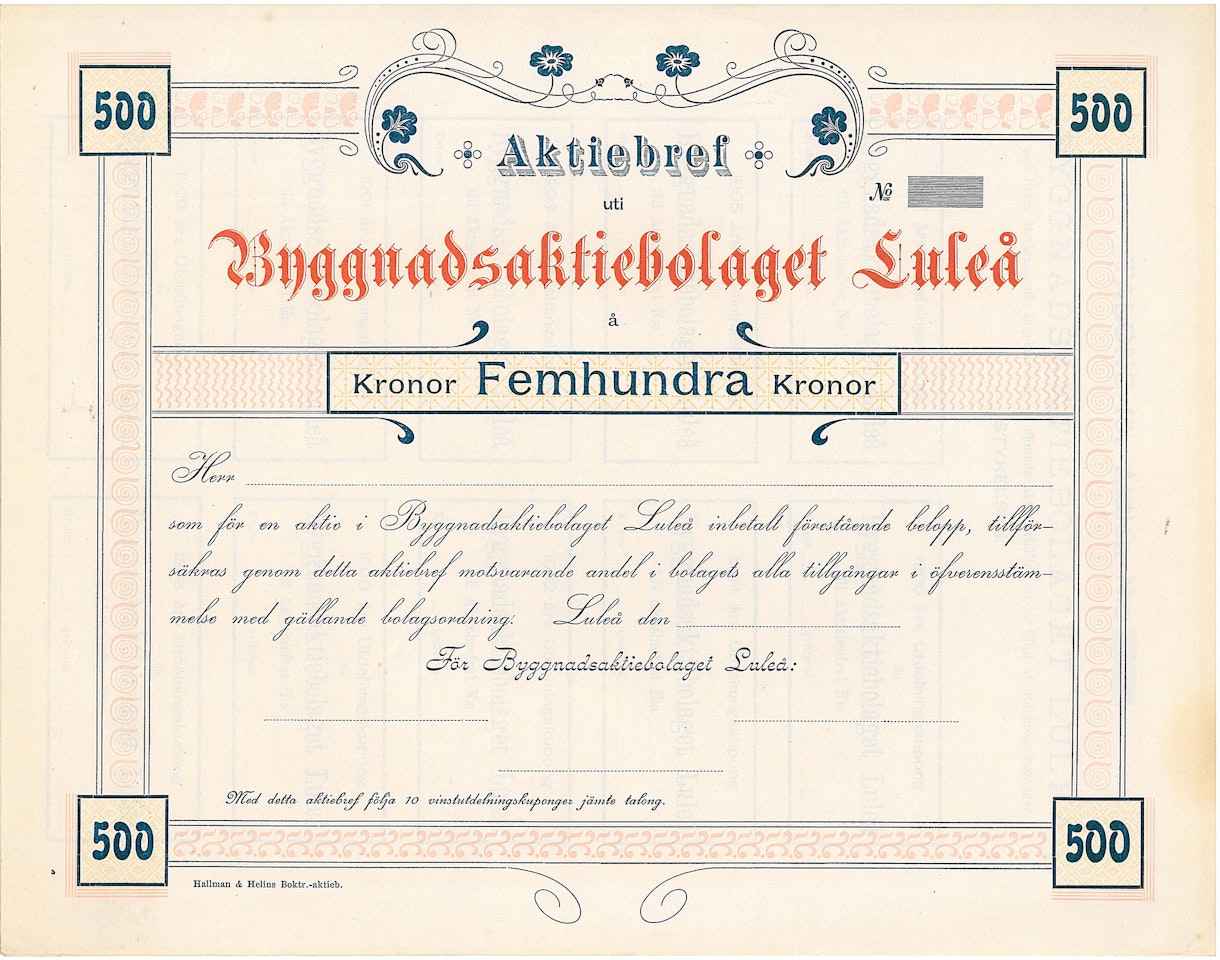 500
500
Aktiebref
No
uti
Byggnadsaktiebolaget Luleå
å
Kronor Femhundra Kronor
Herr
som för en aktie i Byggnadsaktiebolaget Luleå inbetalt förestående belopp, tillför-
säkras genom detta aktiebref motsvarande andel i bolagets alla tillgångar i öfverensstäm-
melse med gällande bolagsordning. Luleå den
För Byggnadsaktiebolaget Luleå:
Med detta aktiebref följa 10 vinstutdelningskuponger jämte talong.
500
500
Hallman & Helins Boktr.-aktieb.